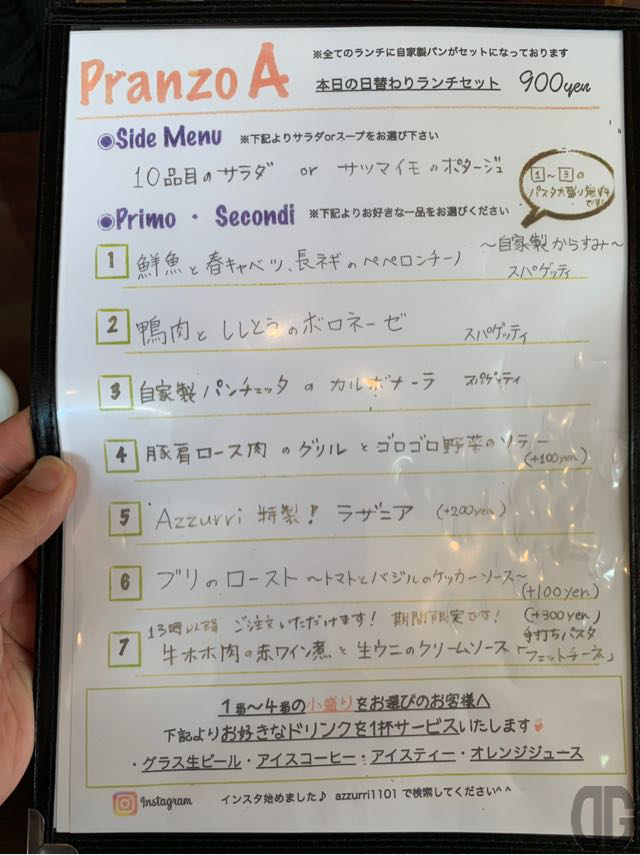 Pranzo A
※全てのランチに自家製パンがセットになっております
本日の日替わりランチセット 900yen
◉Side Menu ※下記よりサラダorスープをお選び下さい
10品目のサラダ or サツマイモのポタージュ
1〜3の
パスタ大盛り無料
です!
◉Primo ・ Secondi ※下記よりお好きな一品をお選びください
1 鮮魚と春キャベツ、長ネギのペペロンチーノ 〜自家製からすみ〜
スパゲッティ
2 鴨肉とししとうのボロネーゼ スパゲッティ
3 自家製パンチェッタのカルボナーラ スパゲッティ
4 豚肩ロース肉のグリルとゴロゴロ野菜のソテー
(+100yen)
5 Azzurri 特製! ラザニア (+200yen)
6 ブリのロースト 〜トマトとバジルのケッカーソース〜
(+100yen)
13時以降 ご注文いただけます! 期間限定です! (+300yen)
7 牛ホホ肉の赤ワイン煮と生ウニのクリームソース 手打ちパスタ
「フェットチーネ」
1番〜4番の小盛りをお選びのお客様へ
下記よりお好きなドリンクを1杯サービスいたします
・グラス生ビール・アイスコーヒー・アイスティー・オレンジジュース
Instagram インスタ始めました♪ azzurri1101 で検索してください^^
DG